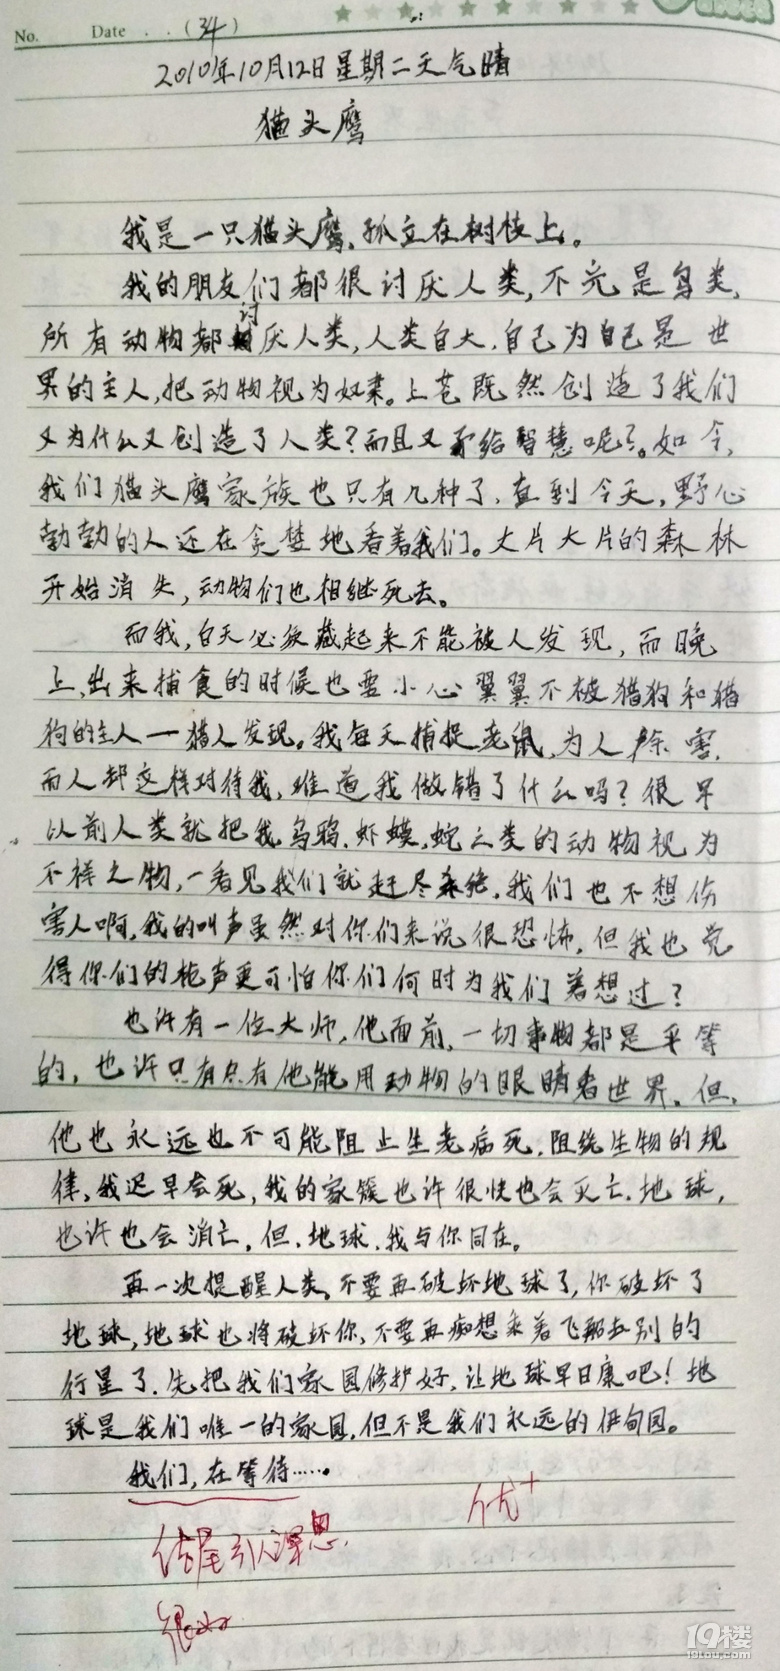 No. Date . . (34)
2010年10月12日星期二天气晴
猫头鹰
我是一只猫头鹰,孤立在树枝上。
我的朋友们都很讨厌人类,不光是鸟类,
所有动物都讨厌人类,人类自大,自己为自己是世
界的主人,把动物视为奴隶。上苍既然创造了我们
又为什么又创造了人类?而且又给智慧呢?。如今,
我们猫头鹰家族也只有几种了,直到今天,野心
勃勃的人还在贪婪地看着我们。大片大片的森林
开始消失,动物们也相继死去。
而我,白天必须藏起来不能被人发现,而晚
上,出来捕食的时候也要小心翼翼不被猎狗和猎
狗的主人一猎人发现。我每天捕捉老鼠,为人除害,
而人却这样对待我,难道我做错了什么吗?很早
以前人类就把我,乌鸦,虾蟆,蛇之类的动物视为
不祥之物,一看见我们就赶尽杀绝,我们也不想伤
害人啊,我的叫声虽然对你们来说很恐怖,但我也觉
得你们的枪声更可怕你们何时为我们着想过?
也许有一位大师,他面前,一切事物都是平等
的,也许只有只有他能用动物的眼睛看世界,但,
他也永远也不可能阻止生老病死,阻绕生物的规
律,我迟早会死,我的家簇也许很快也会灭亡,地球,
也许也会消亡,但,地球,我与你同在。
再一次提醒人类,不要再破坏地球了,你破坏了
地球,地球也将破坏你,不要再痴想乘着飞船去别的
行星了,先把我们家园修护好,让地球早日康吧!地
球是我们唯一的家园,但不是我们永远的伊甸园。
我们,在等待……
优+
结尾引人深思,
很好
19楼
19lou.com